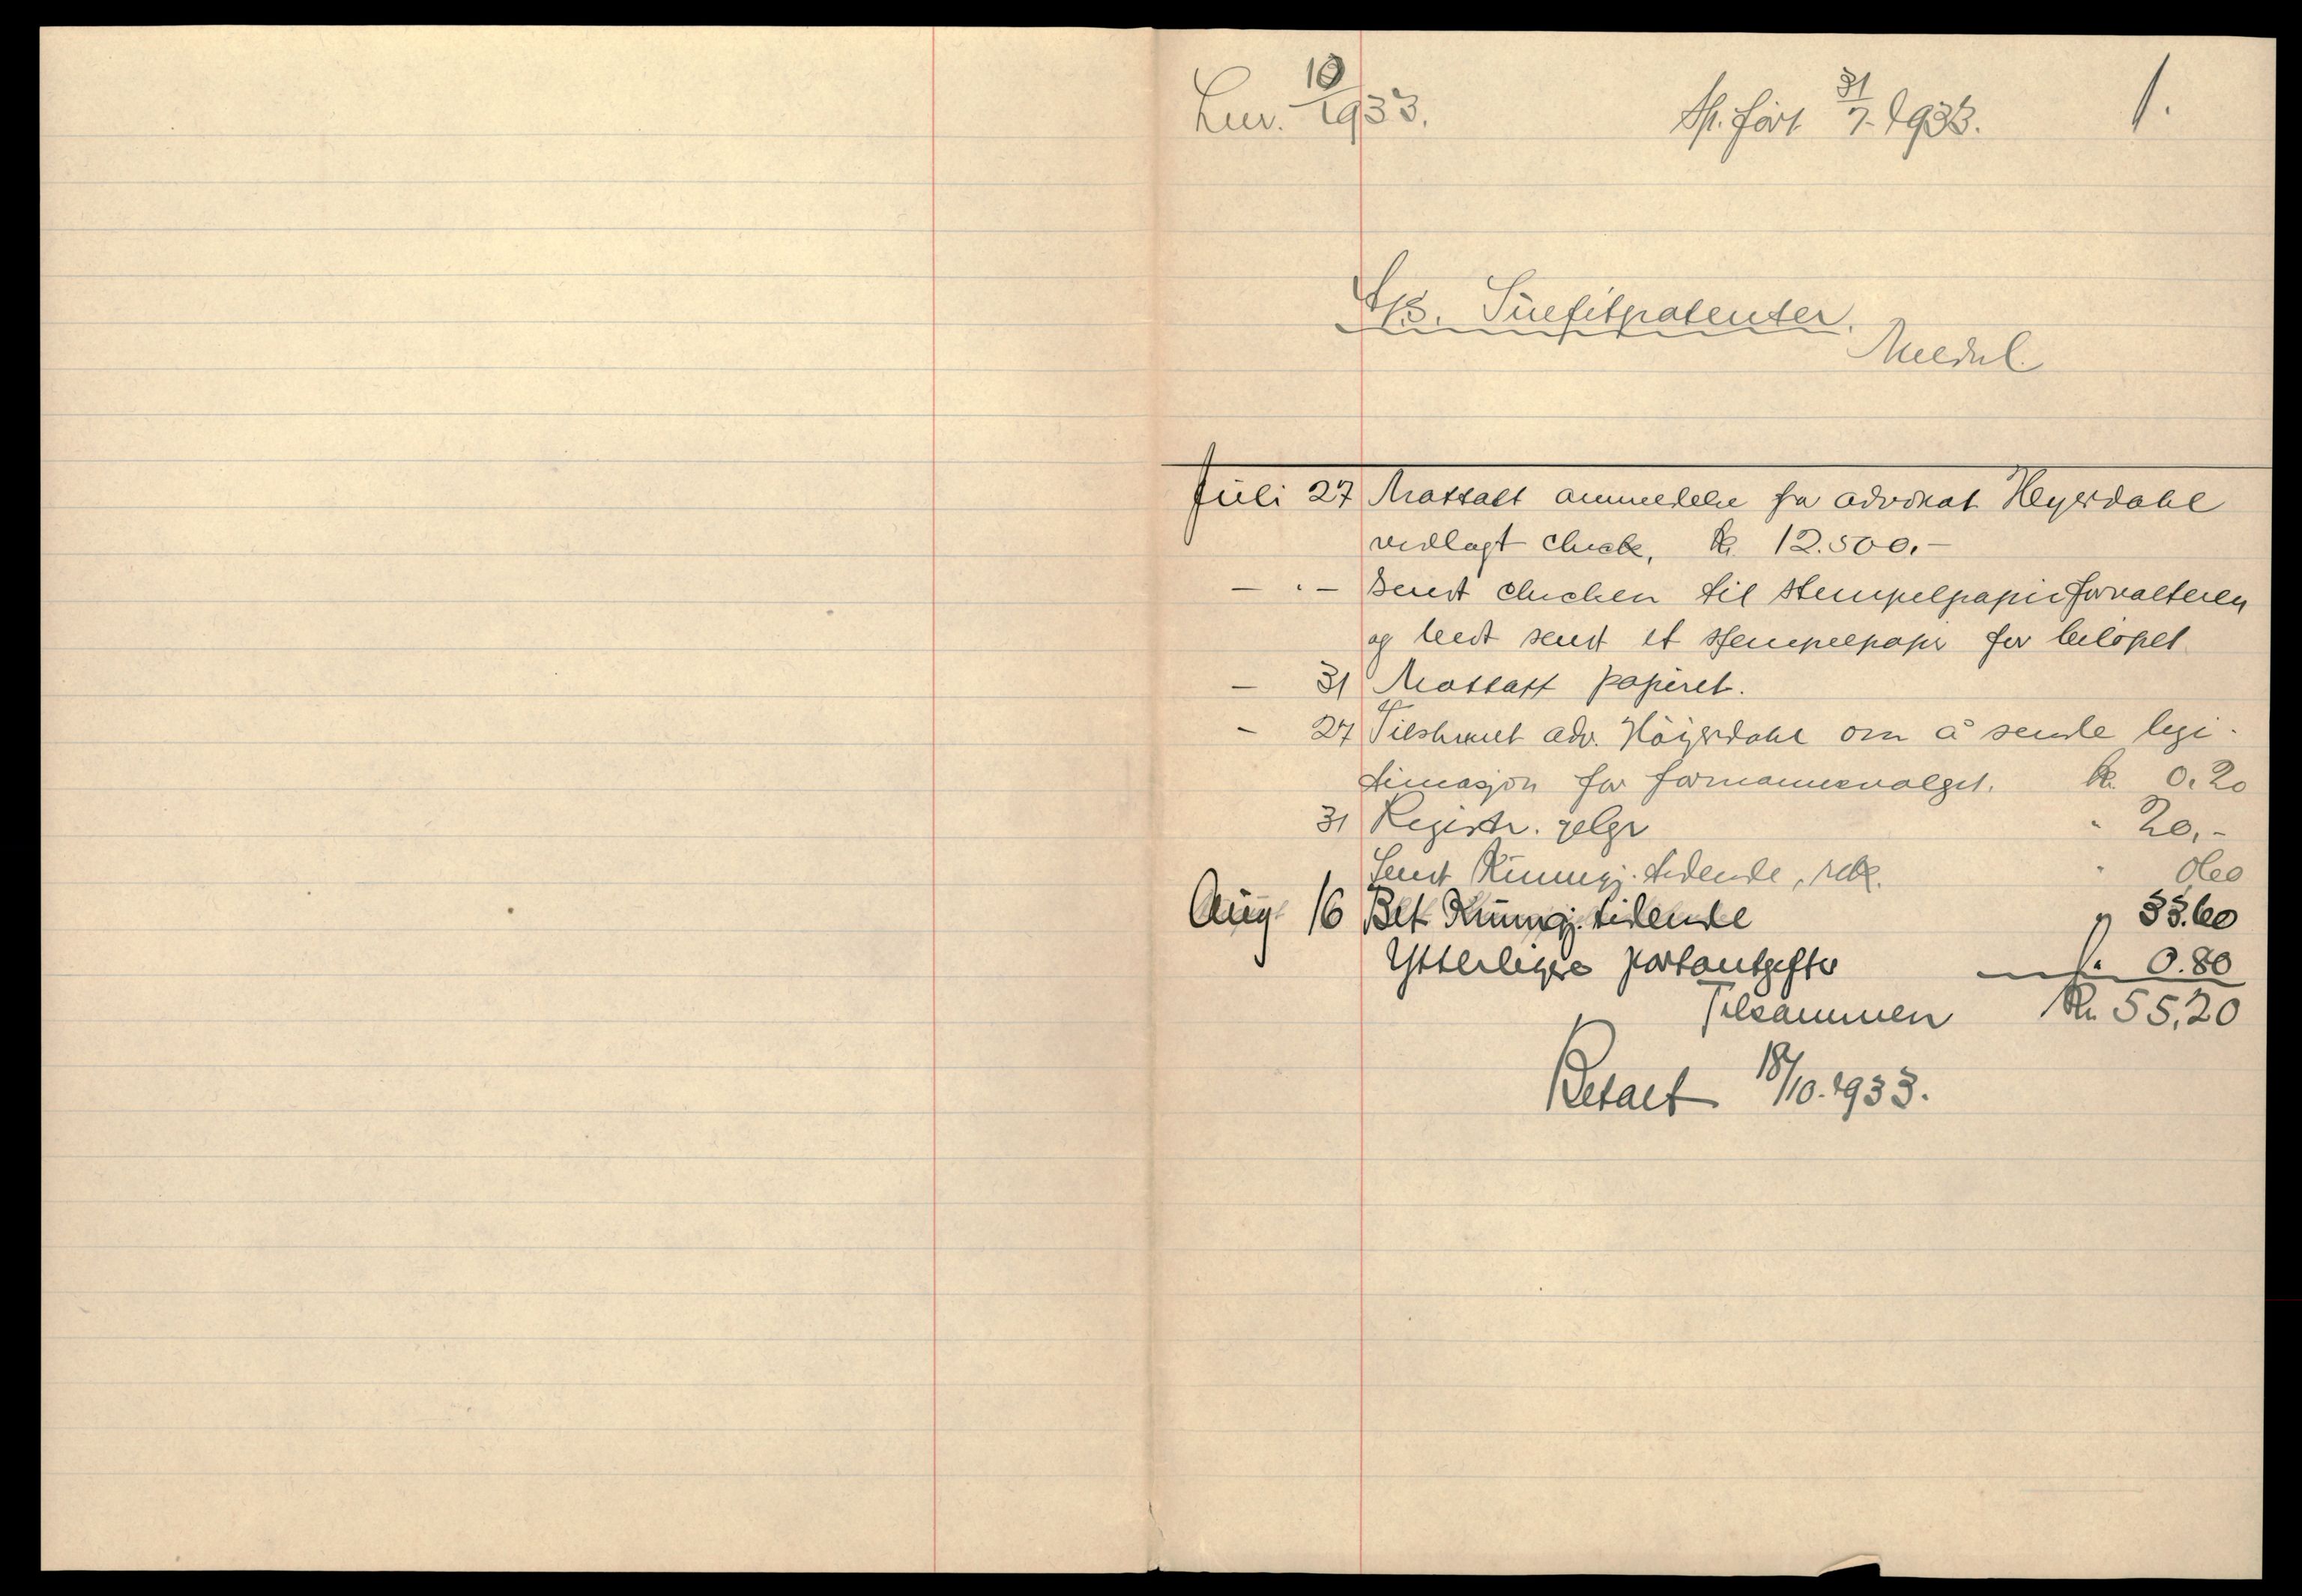 Lnr. 10/1933.
Sp. ført 31/7. 1933. 1.
A/S. Suefitpatenter.
Meldal
Juli 27 Mottatt anmeldelse fra advokat Heyerdahl
vedlagt check, kr. 12.500.-
- " - Sendt checken til stempelpapirforvalteren
og bedt sendt et stempelpapir for beløpet.
- 31 Mottatt papiret.
- 27 Tilskrevet adv. Höyerdahl om å sende legi-
timasjon for formannsvalget. kr. 0.20
31 Registr. gebyr " 20,-
Sendt Kunngj. tidende, rek. " 0.60
Aug. 16 Bet. Kunngj. tidende " 33.60
Ytterligere portoutgifter " 0.80
Tilsammen Kr. 55,20
Betalt 18/10. 1933.